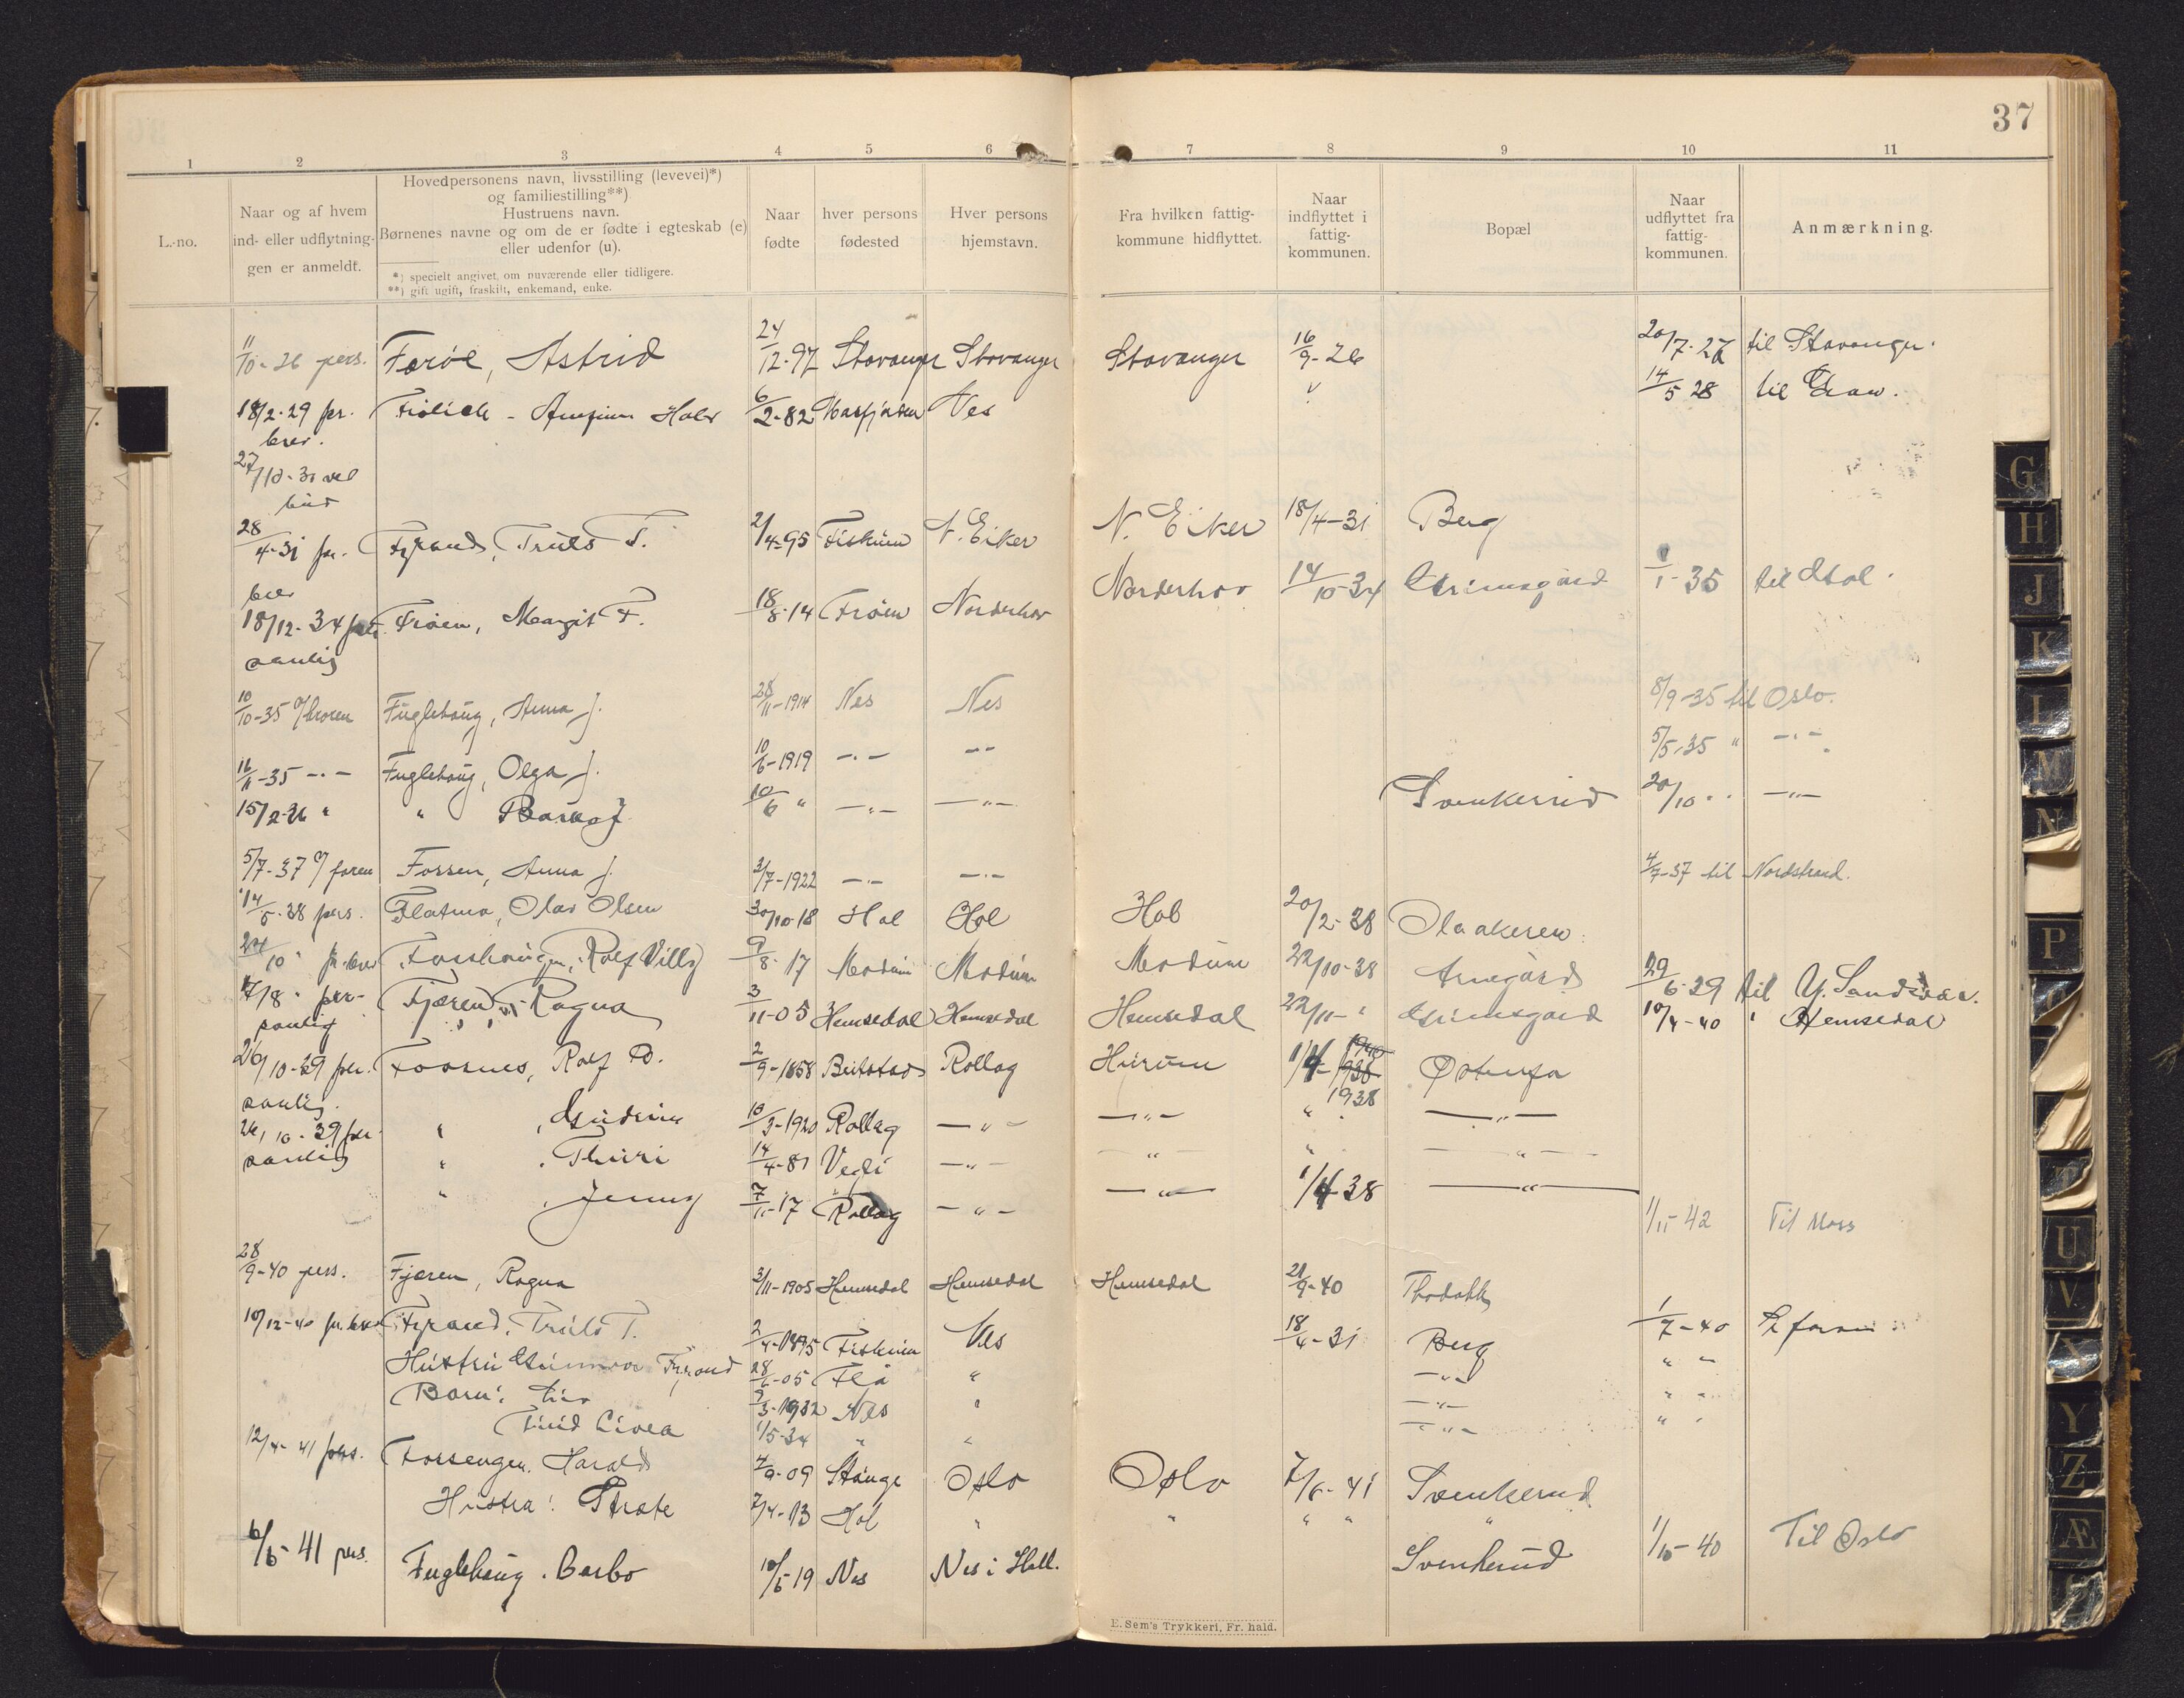 37
1 2 3 4 5 6 7 8 9 10 11
L.-no.
Naar og af hvem ind- eller udflytningen er anmeldt.
Hovedpersonens navn, livsstilling (levevei)*) og familiestilling**)
Hustruens navn.
Børnenes navne og om de er fødte i egteskab (e) eller udenfor (u).
*) specielt angivet, om nuværende eller tidligere.
**) gift ugift, fraskilt, enkemand, enke.
Naar fødte
hver persons fødested
Hver persons hjemstavn.
Fra hvilken fattigkommune hidflyttet.
Naar indflyttet i fattigkommunen.
Bopæl
Naar udflyttet fra fattigkommunen.
Anmærkning.
11/10-26 pers. Farøe, Astrid 24/12-97 Stavanger Stavanger Stavanger 16/9-26 20/7-27 til Stavanger.
18/2-29 pr. Frölich - Holer 6/2-82 Masfjorden Nes " 14/5 28 til
brev.
27/10-30 ved
bud
28/4-31 pr. Fyrand, Truls T. 2/4-95 Fiskum N. Eiker N. Eiker 18/4-31 Berg
brev
18/12-34 pers. Frøen, Margit F. 18/8-14 Frøen Norderhov Norderhov 14/10-34 Grimsgård 1/1-35 til Hol.
sonlig
10/10-35 a/broren Fuglehaug, Anna J. 28/11-1914 Nes Nes 8/9-35 til Oslo.
16/11-35 -"- Fuglehaug, Olga J. 10/6-1919 -"- -"- 5/5-35 " -"-
15/2-36 " " Barbo J. 10/6 " -"- -"- Svenkerud 20/10 " " -"-
5/7-37 a/ faren Fossen, Anna J. 3/7-1922 -"- -"- 4/7-37 til Nordstrand.
14/5-38 pers. Flatmo, Olav Olsen 30/10-18 Hol Hol Hol 20/2-38 Olaakeren
24/10 " pr. brev Fosshaugen, Rolf Villy 9/8-17 Modum Modum Modum 22/10-38 Arnegård 29/6-39 til Y. Sandsvær.
17/8 " per- Fjæren, Ragna 3/11-05 Hemsedal Hemsedal Hemsedal 22/11- " Grimsgård 10/4-40 " Hemsedal
sonlig
26/10-39 per. Fosnes, Rolf D. 2/9-1858 Beitstad Rollag Hurum 1/4- 1938 Østenfor
sonlig.
26/10-39 per- " , Gudrun 10/3-1920 Rollag -"- -"- " 1938 -"-
sonlig " , Thuri 14/4-81 Vegli -"- -"- " -"-
" , Jenny 7/11-17 Rollag -"- -"- 1/4-38 -"- 1/11-42 Til Moss
28/9-40 pers. Fjæren, Ragna 3/11-1905 Hemsedal Hemsedal Hemsedal 21/9-40
10/12-40 pr. brev Fyrand, Truls T. 2/4-1895 Fiskum Nes 18/4-31 Berg 1/7-40
Hustru Gunnvor Fyrand 28/6-05 Flå " -"- " "
Barn: Liv 3-1932 Nes " -"- " "
Turid Livea 1/5-34 " " -"- " "
12/4-41 pers. Fossengen. Harald 4/9-09 Stange Oslo Oslo 7/6-41 Svenkerud
Hustru: 7/4-13 Hol " " " " "
6/5-41 pers. Fuglehaug. Barbo 10/6-19 Nes Nes i Hall. Svenkerud 1/10-40 Til Oslo
E. Sem's Trykkeri, Fr. hald.
G
H
J
K
L
M
N
P
T
U
V
X
Y
Z
Æ